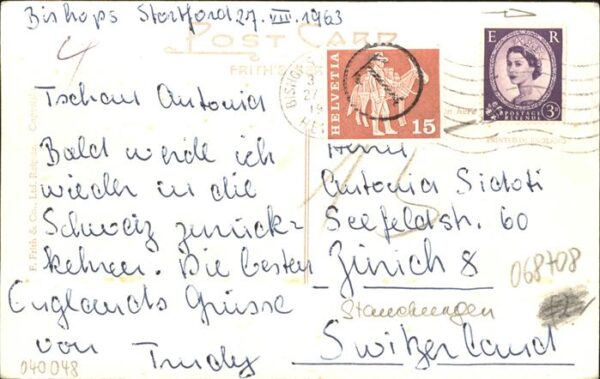 Bishops Stortford 27. VIII. 1963
POST CARD
FRITH'S
Tschau Antonia
Bald werde ich
wieder in die
Schweiz zurück-
kehren. Die besten
Englands Grüsse
von Trudy
HELVETIA
15
T
BISHOP
E R
3D
POSTAGE
REVENUE
Herrn
Antonio Sidoti
Seefeldstr. 60
Zürich 8
Switzerland
068708
040048
F. Frith & Co., Ltd., Reigate